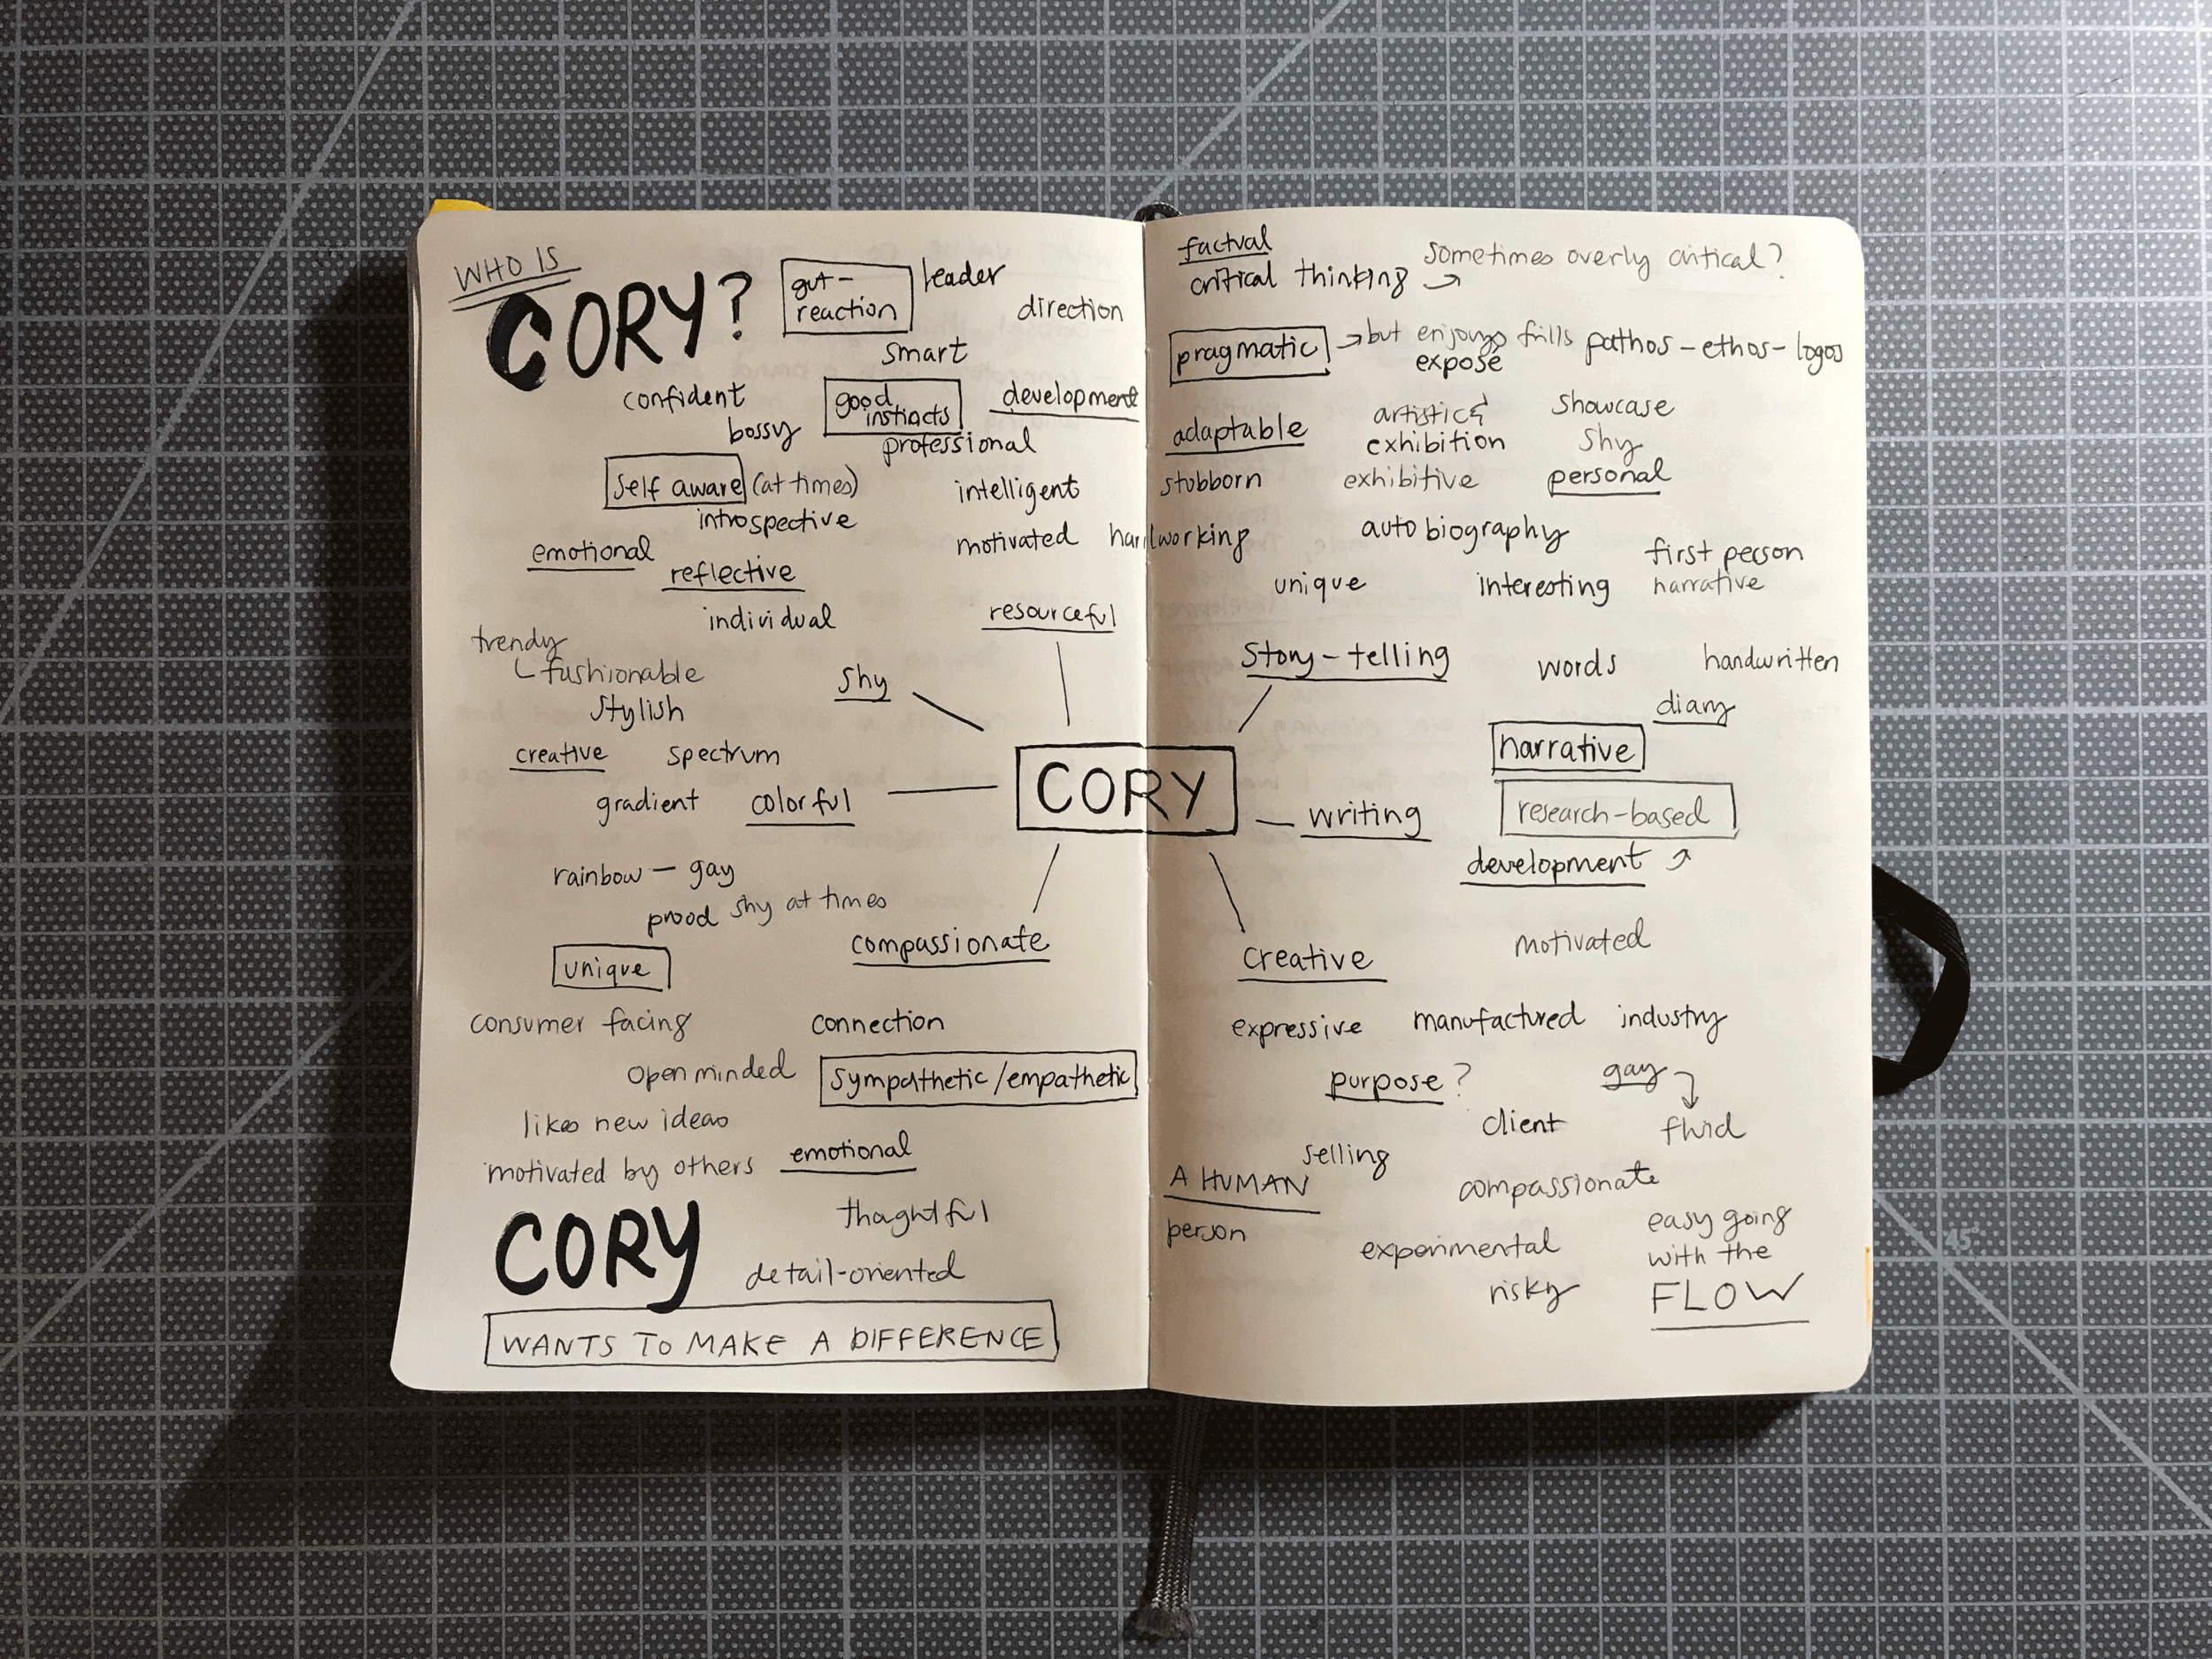 WHO IS
CORY?
gut-
reaction
leader
direction
smart
confident
good
instincts
development
bossy
professional
self aware (at times)
intelligent
introspective
motivated hardworking
emotional
reflective
individual
resourceful
trendy
fashionable
shy
stylish
creative spectrum
gradient colorful
CORY
rainbow - gay
proud shy at times
compassionate
unique
consumer facing connection
open minded sympathetic/empathetic
likes new ideas
motivated by others emotional
CORY
thoughtful
detail-oriented
WANTS TO MAKE A DIFFERENCE
factual
critical thinking
sometimes overly critical?
pragmatic but enjoys frills pathos-ethos-logos
expose
adaptable
artistic &
exhibition
showcase
shy
stubborn exhibitive personal
autobiography
first person
narrative
unique interesting
story-telling words handwritten
diary
narrative
research-based
writing
development
creative motivated
expressive manufactured industry
purpose? gay
client fluid
selling
A HUMAN
person
compassionate
experimental
risky
easy going
with the
FLOW
45°